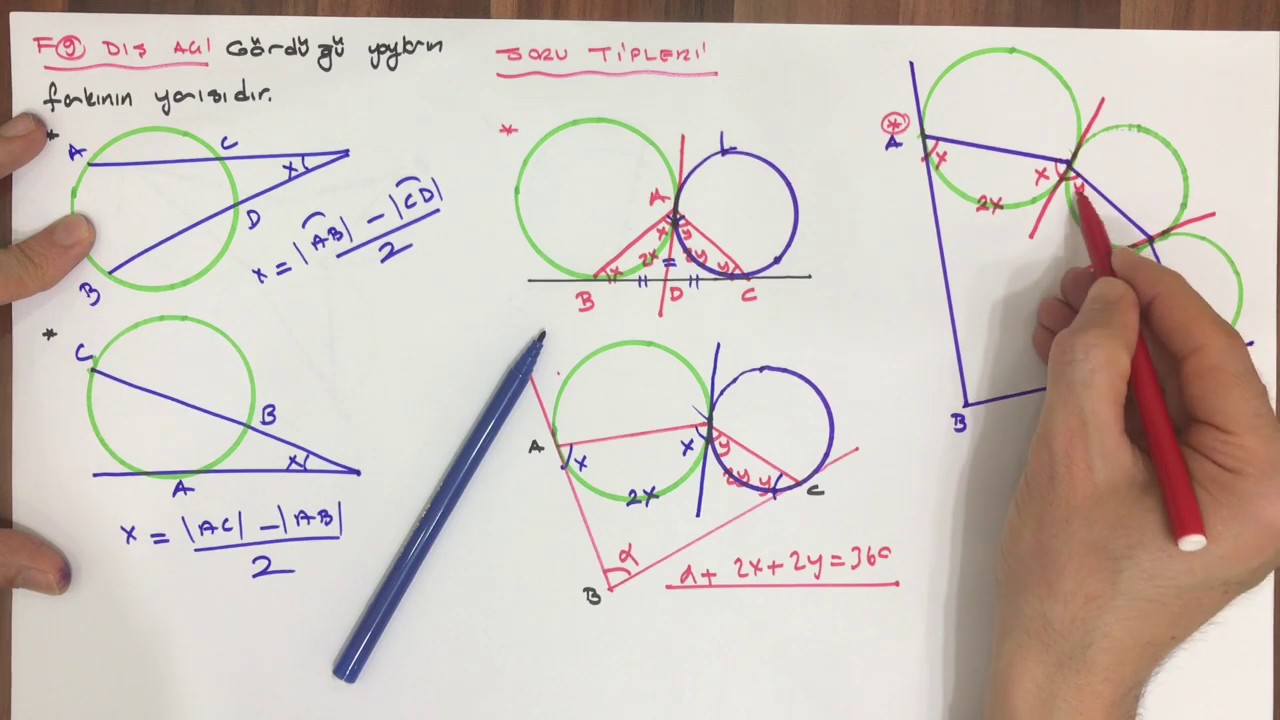 F9 DIŞ AÇI Gördüğü yayların
farkının yarısıdır.
*
A
C
x
D
B
x = |AB| - |CD|
2
*
C
B
x
A
x = |AC| - |AB|
2
SORU TİPLERİ
*
A
x
y
2x
2y
x
y
B
D
C
A
x
x
y
2x
2y
y
C
α
B
α + 2x + 2y = 360
*
A
x
x
y
2x
B